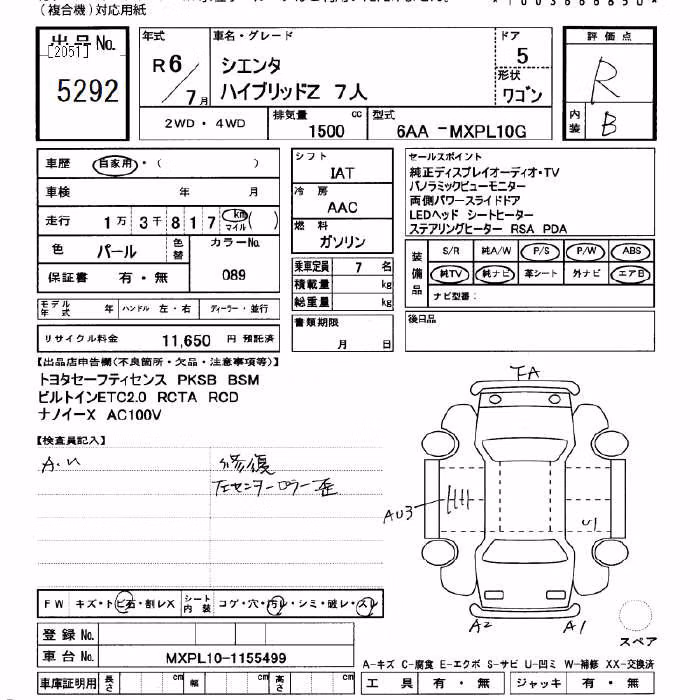 (複合機)対応用紙
*1003666850*
出品No.
[2051]
5292
年式
R6/7月
車名・グレード
シエンタ
ハイブリッドZ 7人
ドア
5
形状
ワゴン
評価点
R
内装 B
2WD・4WD
排気量 1500 cc
型式 6AA -MXPL10G
車歴 自家用・( )
車検 年 月
走行 1万3千817 km マイル ( )
色 パール 色替 カラーNo. 089
保証書 有・無
モデル年式 年 ハンドル 左・右 ディーラー・並行
リサイクル料金 11,650 円 預託済
シフト
IAT
冷房
AAC
燃料
ガソリン
乗車定員 7 名
積載量 kg
総重量 kg
書類期限
月 日
セールスポイント
純正ディスプレイオーディオ・TV
パノラミックビューモニター
両側パワースライドドア
LEDヘッド シートヒーター
ステアリングヒーター RSA PDA
装備品
S/R 純A/W P/S P/W ABS
純TV 純ナビ 革シート 外ナビ エアB
ナビ型番:
後日品
【出品店申告欄(不良箇所・欠品・注意事項等)】
トヨタセーフティセンス PKSB BSM
ビルトインETC2.0 RCTA RCD
ナノイーX AC100V
【検査員記入】
A・U 修復
左センターピラー歪
FA
AU3
U1
A2 A1
スペア
FW キズ・トビ石・割レX シート内装 コゲ・穴・汚レ・シミ・破レ・スレ
登録No.
車台No. MXPL10-1155499
A-キズ C-腐食 E-エクボ S-サビ U-凹ミ W-補修 XX-交換済
車庫証明用 長さ cm 幅 cm 高さ cm
工具 有・無 ジャッキ 有・無